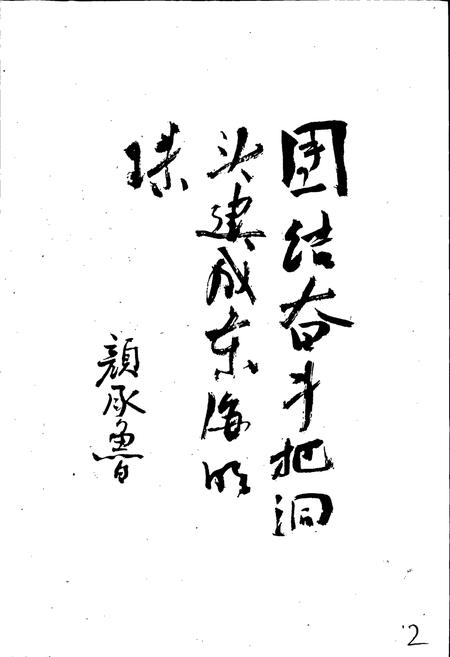 团结奋斗把洞
头建成东海明
珠
颜承鲁
2